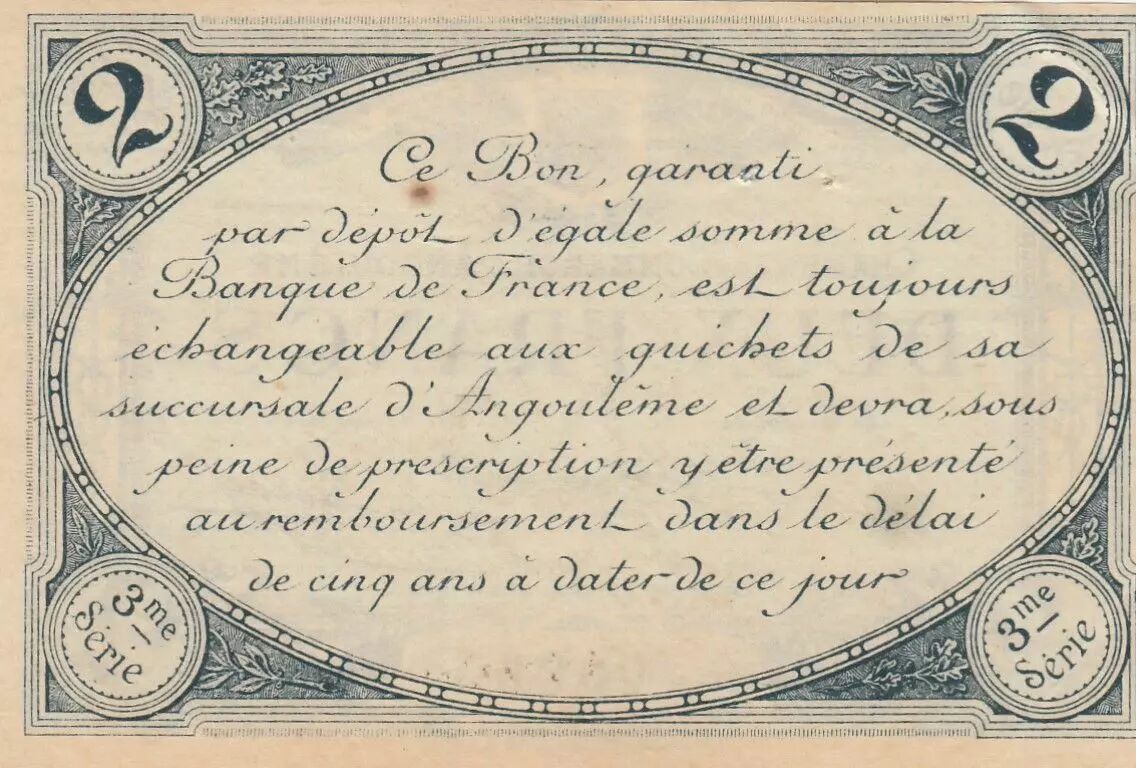 2
2
Ce Bon, garanti
par dépôt d'égale somme à la
Banque de France, est toujours
échangeable aux guichets de sa
succursale d'Angoulême et devra, sous
peine de prescription y être présenté
au remboursement dans le délai
de cinq ans à dater de ce jour
3me Série
3me Série